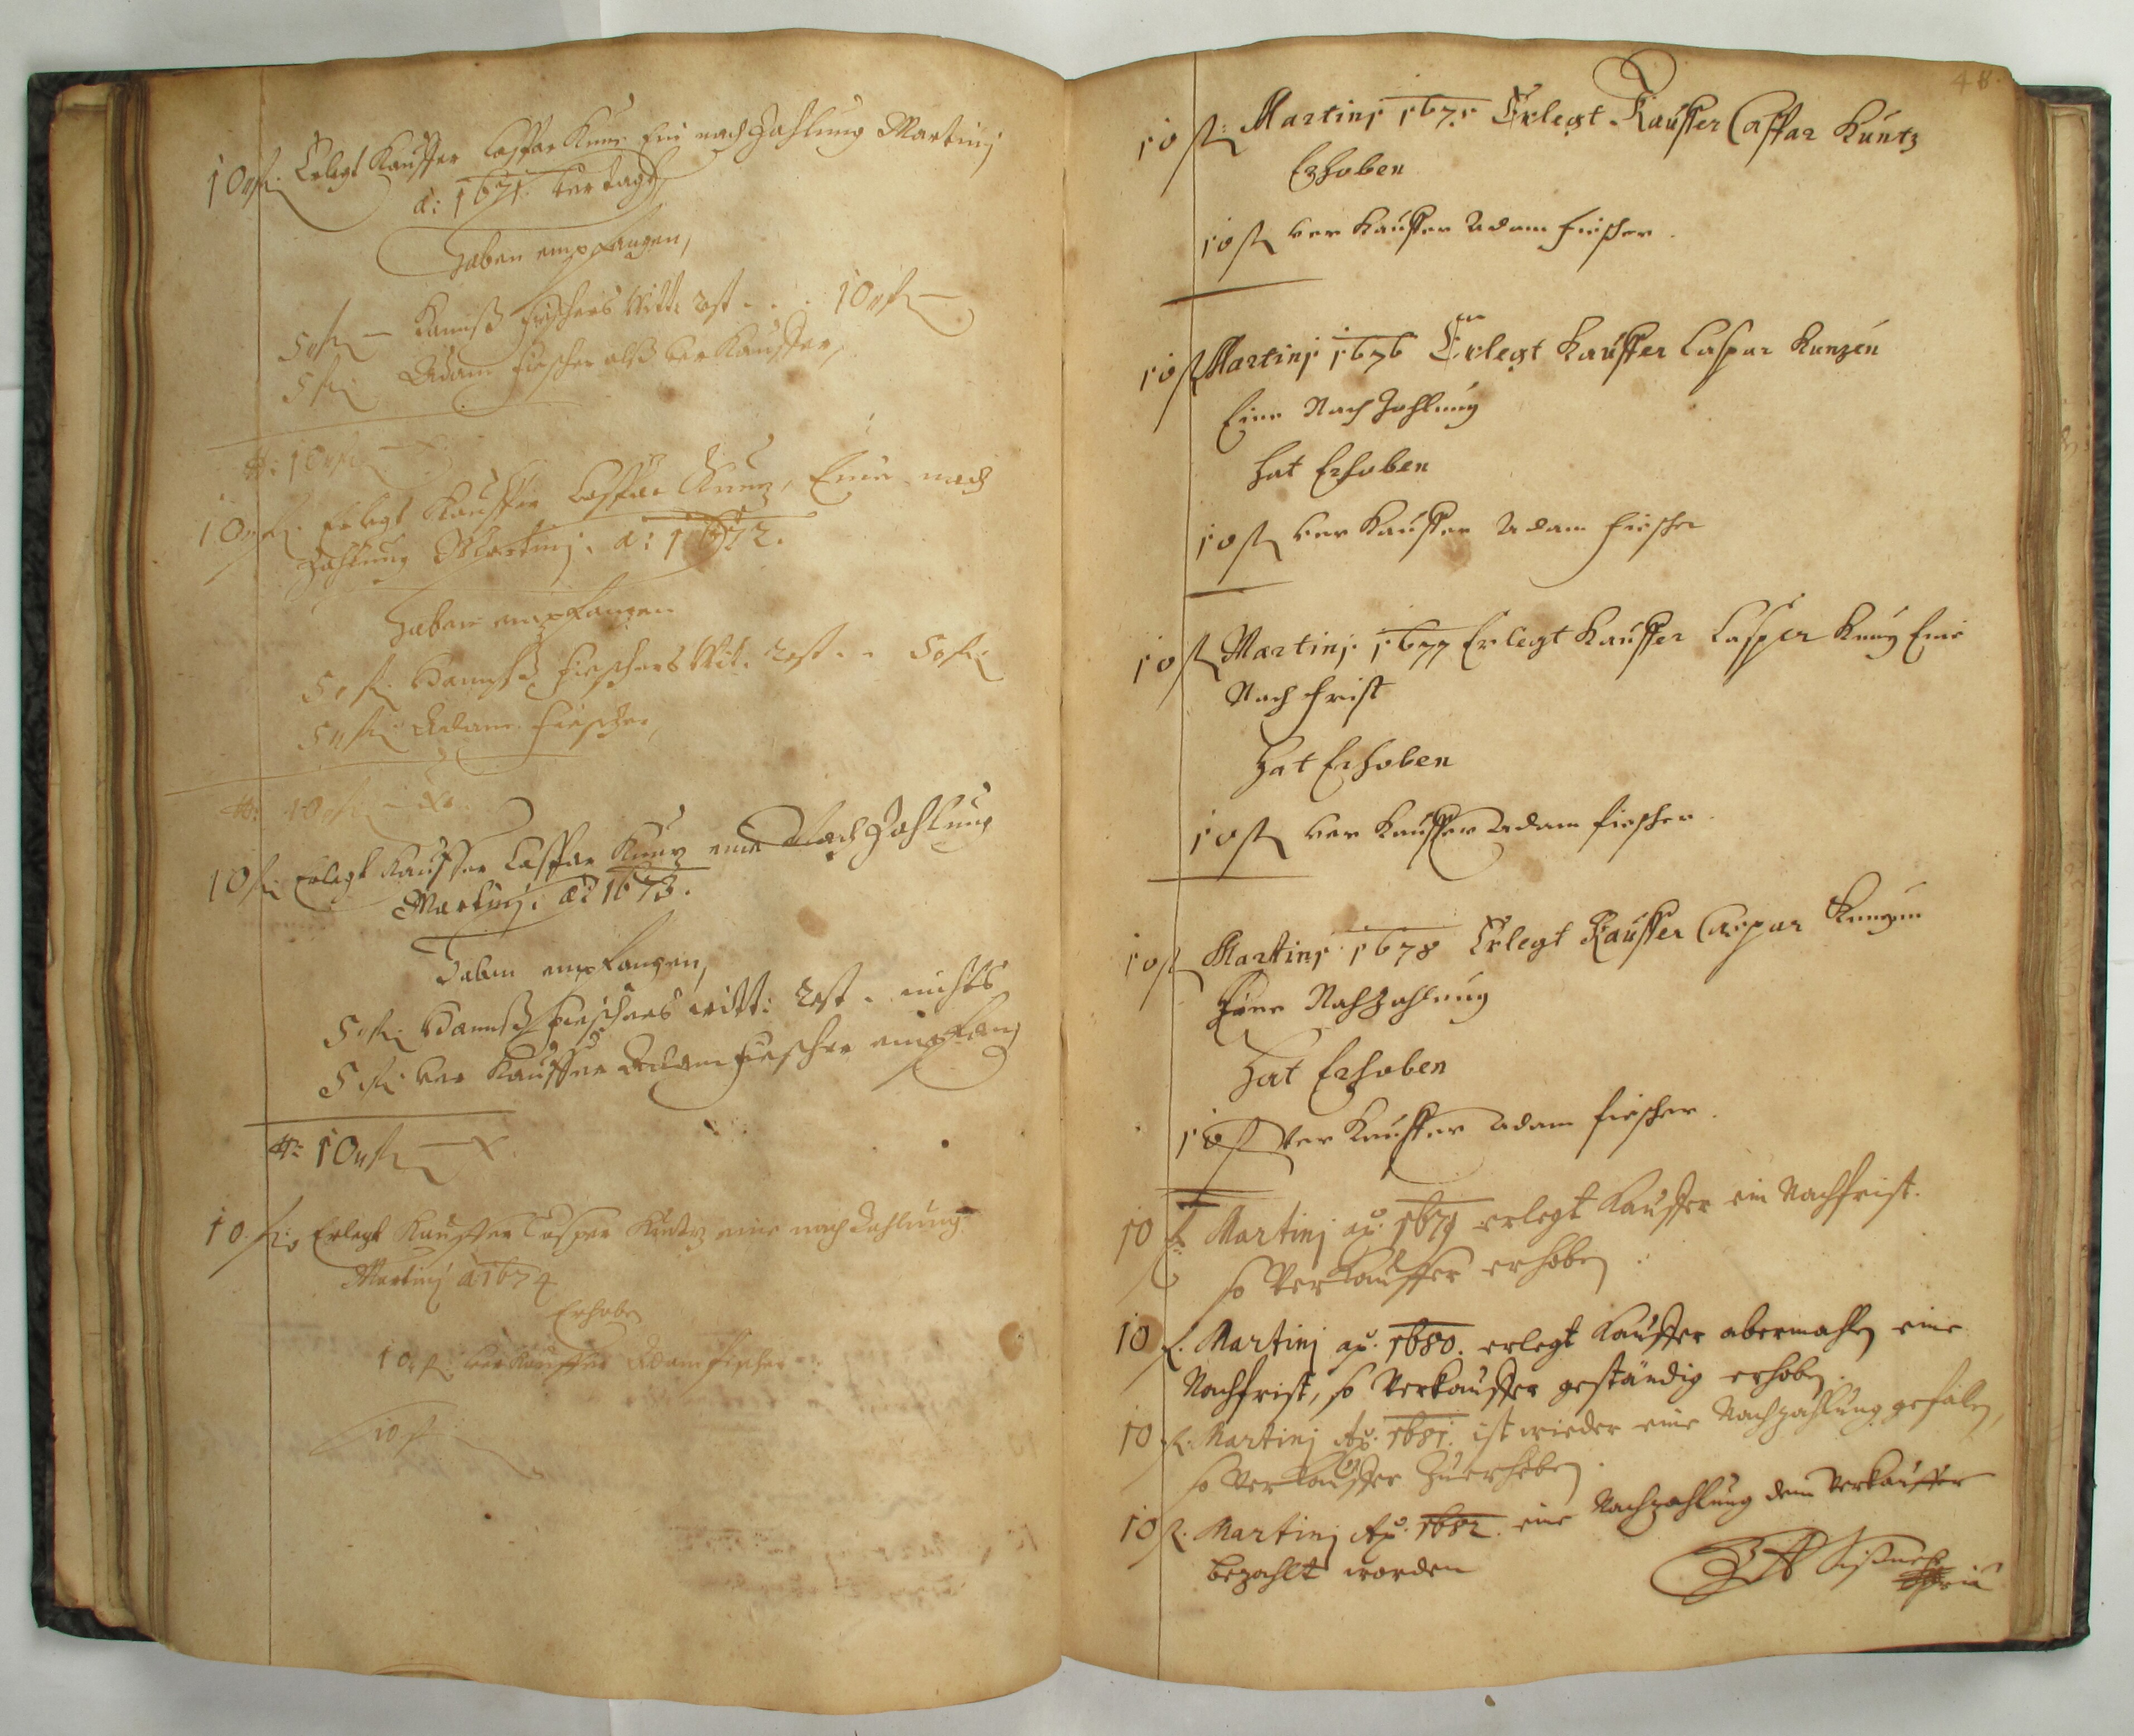 10 fl: Erlegt Kauffer Casspar Kunz Ein nach Zahlung Martinj
a: 1671. ver tagt,
Haben empfangen,
5 fl — Hannß Fieschers Witt: Rest . . . 10 fl —
5 fl: Adam Fiescher alß verKauffer,
#: 10 fl — x
10 fl: Erlegt Kauffer Casspar Kunz, Eine nach
Zahlung Martinj. a: 1672.
Haben empfangen
5 fl: Hannß Fieschers Wit. Rest . . 5 fl:
5 fl: Adam Fiescher,
#: 10 fl — x.
10 fl: Erlegt Kauffer Casspar Kunz eine Nach Zahlung
Martinj. a: 1673.
Haben empfangen,
5 fl: Hannß Fieschers witt: Rest . nichts
5 fl: ver Kauffer Adam Fiescher empfang
#: 10 fl — x.
10. fl: Erlegt Kauffer Casper Kuntz eine nach Zahlung
Martinj a: 1674
Erhoben
10 fl: verKauffer Adam Fischer
10 fl
48.
10 fl: Martinj 1675 Erlegt Kauffer Casspar Kuntz
Erhoben
10 fl ver Kauffer Adam Fiescher.
10 fl Martinj 1676 Erlegt Kauffer Caspar Kunzen
Eine Nach Zahlung
Hat Erhoben
10 fl ver Kauffer Adam Fiescher
10 fl Martinj 1677 Erlegt Kauffer Casper Kunz Eine
Nach Frist
Hat Erhoben
10 fl ver Kauffer Adam Fiescher.
10 fl Martinj 1678 Erlegt Kauffer Caspar Kunzen
Eine Nachzahlung
Hat Erhoben
10 fl ver Kauffer Adam Fiescher.
10 fl: Martinj ao: 1679 erlegt Kauffer ein Nachfrist.
so Verkauffer erhoben
10 fl. Martinj ao. 1680. erlegt Kauffer abermahln eine
Nachfrist, so Verkauffer geständig erhoben.
10 fl. Martinj Ao. 1681. ist wieder eine Nachzahlung gefalen,
so Verkauffer Zuerheben.
10 fl. Martinj Ao. 1682. eine Nachzahlung dem Verkauffer
bezahlt worden